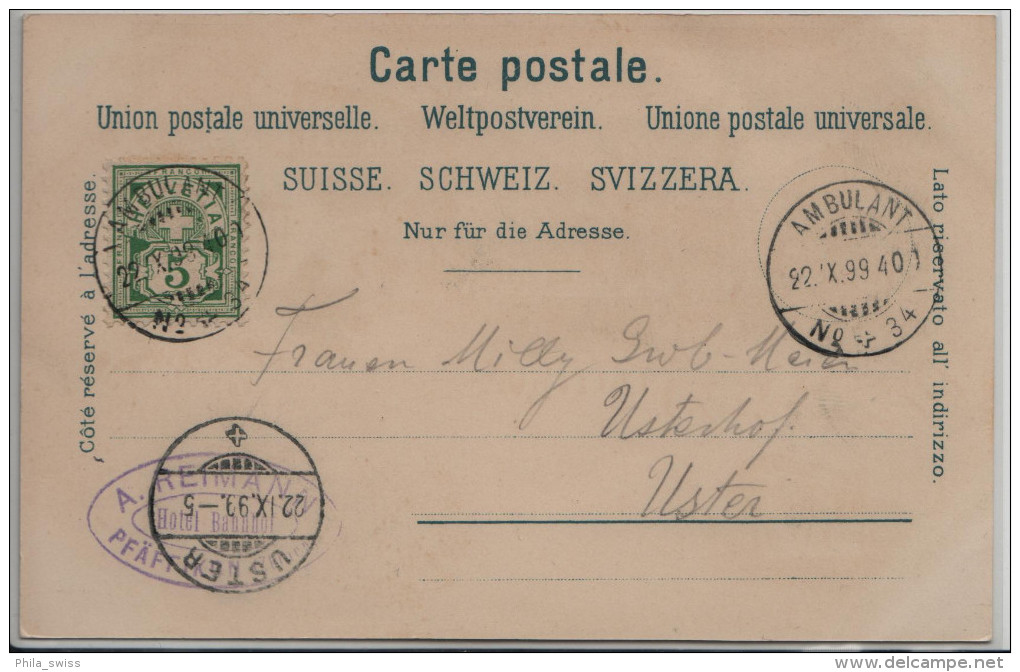 Carte postale.
Union postale universelle. Weltpostverein. Unione postale universale.
SUISSE. SCHWEIZ. SVIZZERA.
Nur für die Adresse.
Côté réservé à l'adresse.
Lato riservato all' indirizzo.
FRANCO
HELVETIA
5
AMBULANT
22.IX.99 40
No 34
AMBULANT
22.IX.99 40
No 34
Frauen Milly Grob-Meier
Usterhof.
Uster
A. REIMANN
Hotel Bahnhof
PFÄFFIKON
22.IX.99.-5
USTER
Phila_swiss
www.delcampe.net